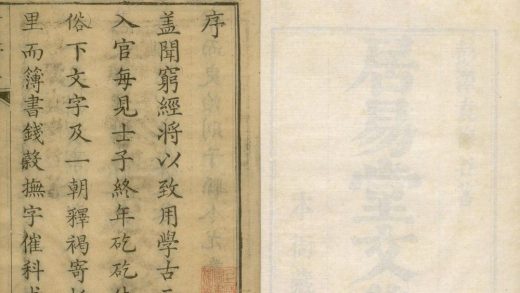 居易堂文
序
盖聞窮經將以致用學古
入官每見士子終年矻矻
俗下文字及一朝釋褐寄
里而簿書錢穀撫字催科